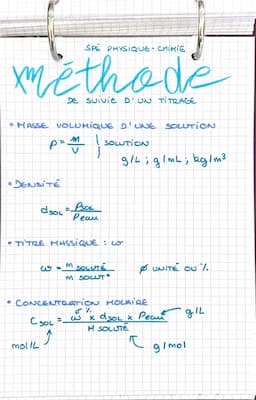 SPÉ PHYSIQUE-CHIMIE
méthode
DE SUIVIE D'UN TITRAGE
• MASSE VOLUMIQUE D'UNE SOLUTION
ρ = m/V | SOLUTION
g/L ; g/mL ; kg/m³
• DENSITÉ
dSOL = ρSOL/ρeau
• TITRE MASSIQUE : ω
ω = m SOLUTÉ/m SOLUT° ∅ UNITÉ OU %
• CONCENTRATION MOLAIRE
CSOL = ω x dSOL x ρeau/M SOLUTÉ
%
g/L
mol/L
g/mol